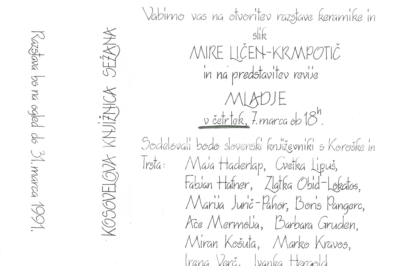 Vabimo vas na otvoritev razstave keramike in
slik
MIRE LIČEN-KRMPOTIČ
in na predstavitev revije
MLADJE
v četrtek, 7. marca ob 18h.
Sodelovali bodo slovenski književniki s Koroške in
Trsta: Maja Haderlap, Cvetka Lipuš,
Fabjan Hafner, Zlatka Obid-Lokatos,
Marija Jurić-Pahor, Boris Pangerc,
Ace Mermolja, Barbara Gruden,
Miran Košuta, Marko Kravos,
Irena Ivanka Hergold
KOSOVELOVA KNJIŽNICA SEŽANA
Razstava bo na ogled do 31. marca 1991.